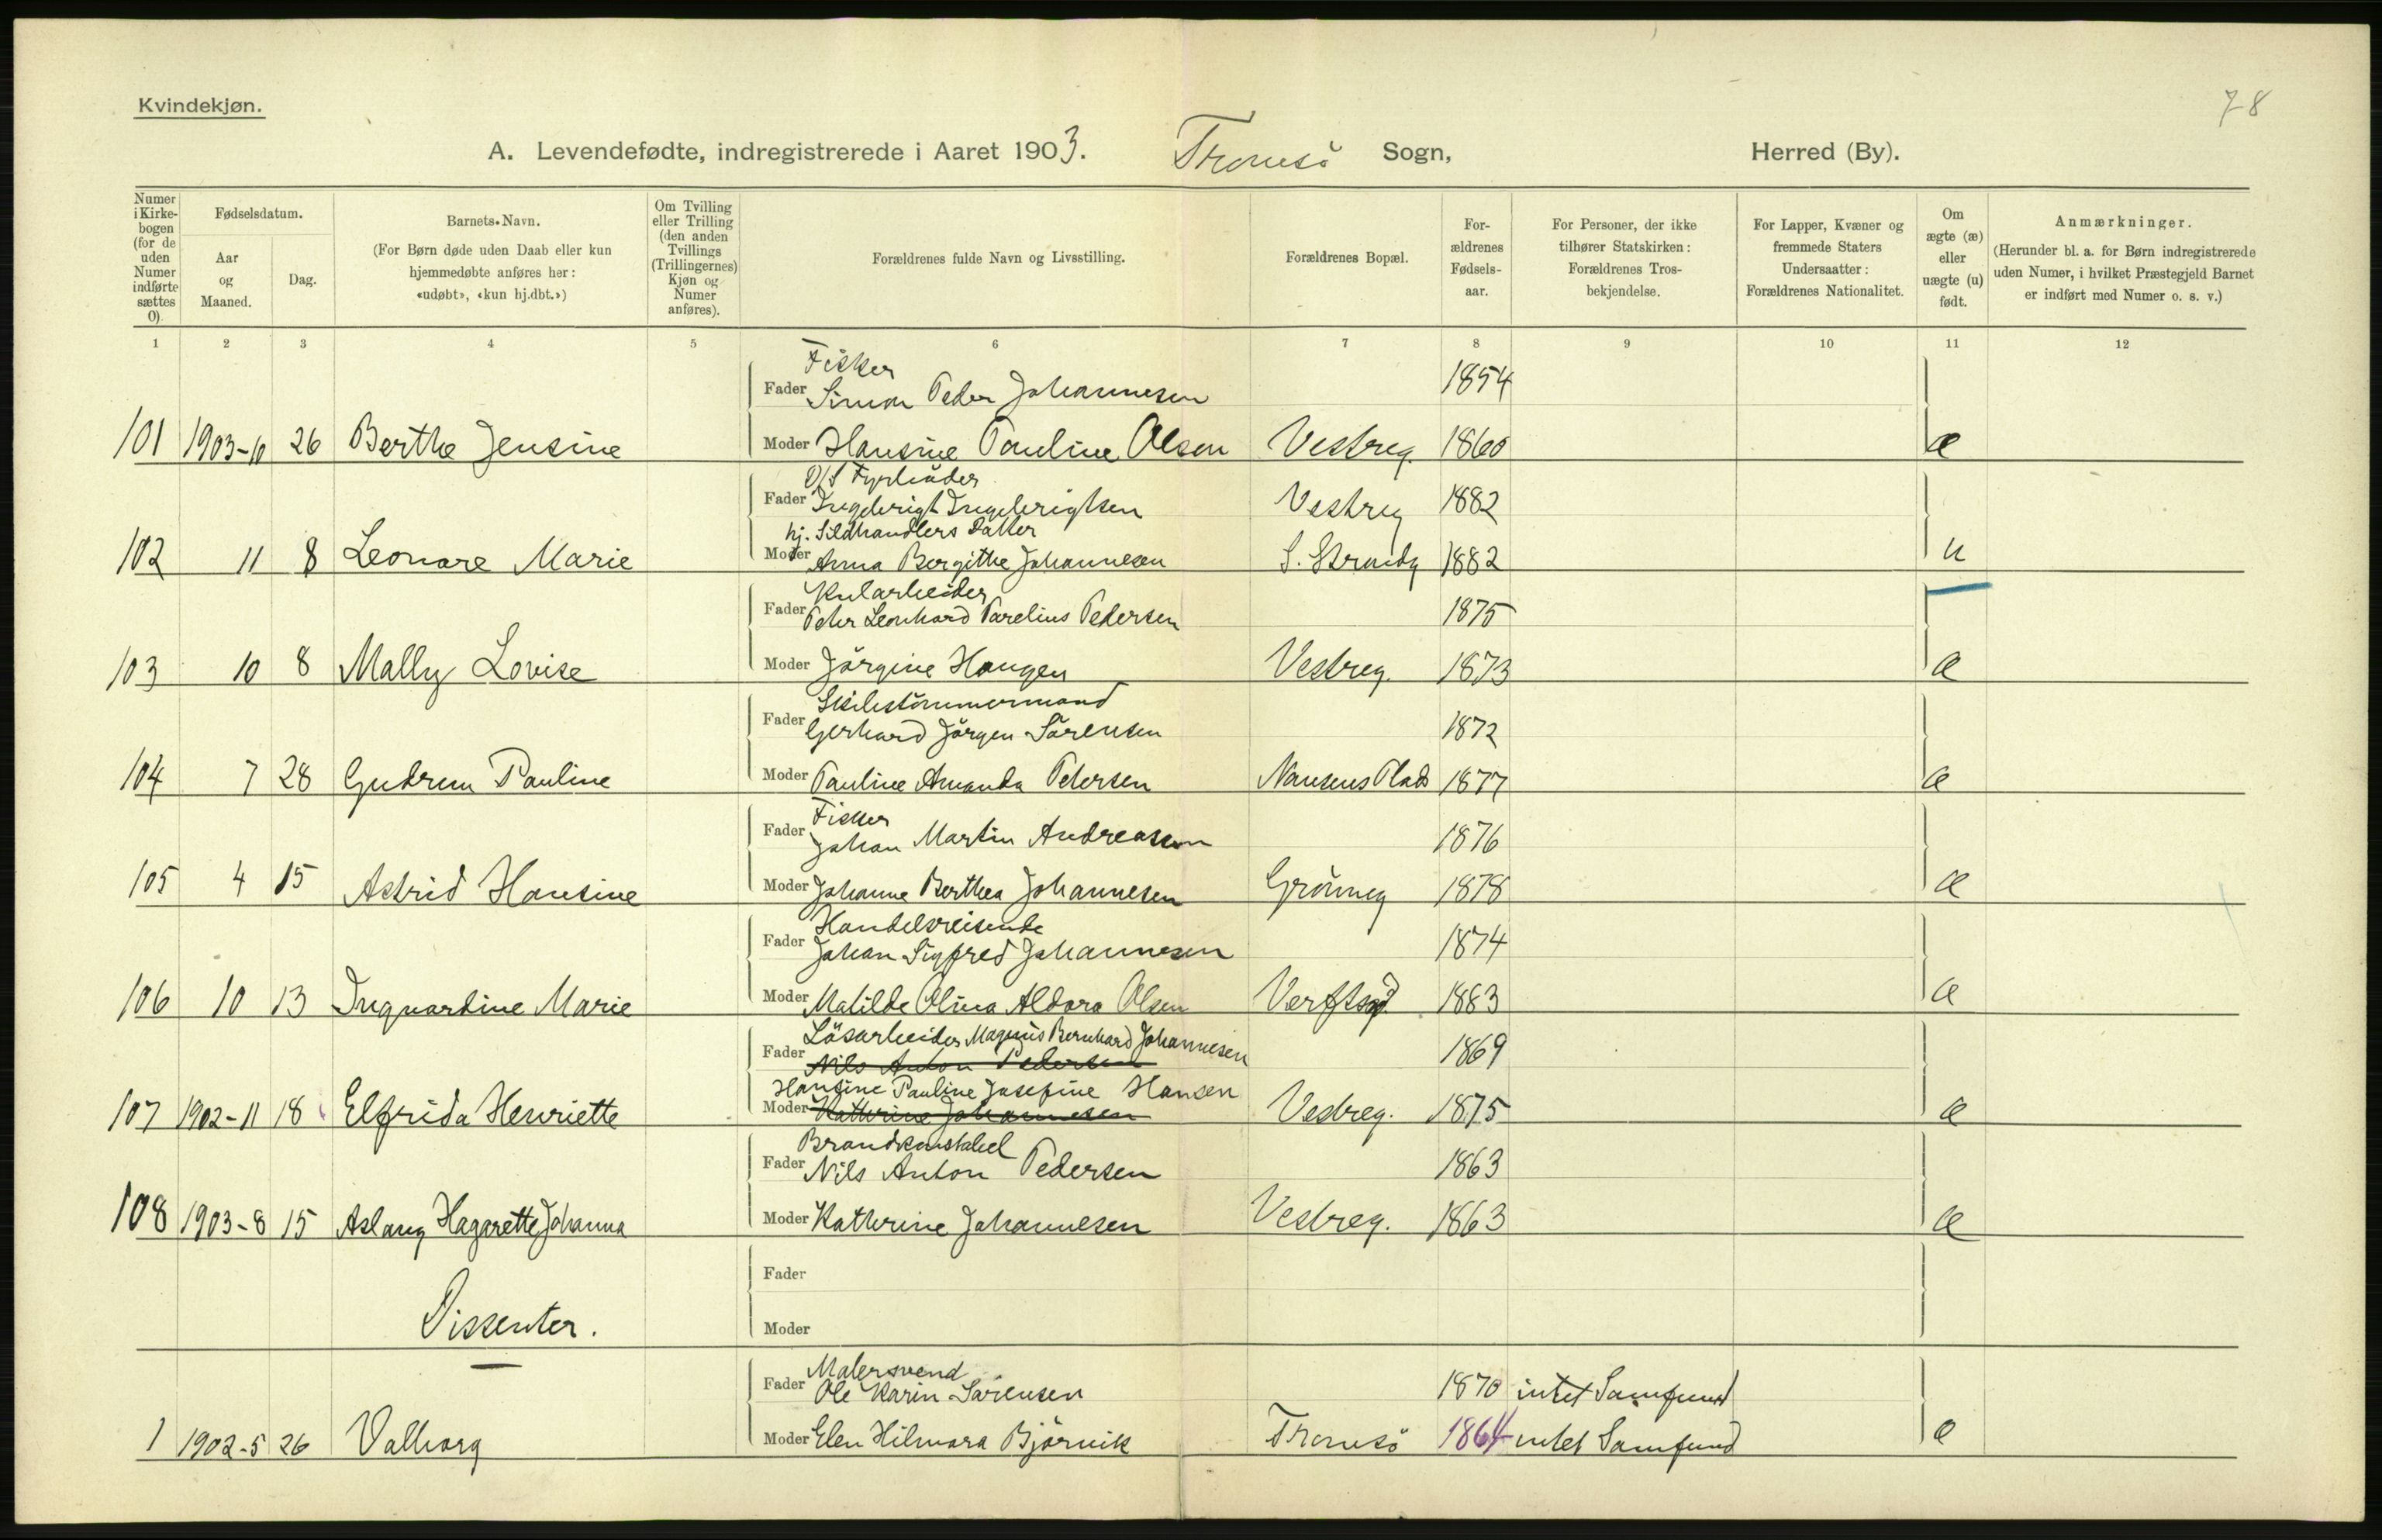 Kvindekjøn.
78
A. Levendefødte, indregistrerede i Aaret 1903. Tromsö Sogn, Herred (By).
Numer i Kirke-bogen (for de uden Numer indførte sættes 0).
Fødselsdatum.
Aar og Maaned.
Dag.
Barnets Navn.
(For Børn døde uden Daab eller kun hjemmedøbte anføres her: «udøbt», «kun hj.dbt.»)
Om Tvilling eller Trilling (den anden Tvillings (Trillingernes) Kjøn og Numer anføres).
Forældrenes fulde Navn og Livsstilling.
Forældrenes Bopæl.
For-ældrenes Fødsels-aar.
For Personer, der ikke tilhører Statskirken: Forældrenes Tros-bekjendelse.
For Lapper, Kvæner og fremmede Staters Undersaatter: Forældrenes Nationalitet.
Om ægte (æ) eller uægte (u) født.
Anmærkninger.
(Herunder bl. a. for Børn indregistrerede uden Numer, i hvilket Præstegjeld Barnet er indført med Numer o. s. v.)
1 2 3 4 5 6 7 8 9 10 11 12
Fisker
Fader Simon Peder Johannesen 1854
101 1903-10 26 Berthe Jensine Moder Hansine Pauline Olsen Vestreg. 1860 æ
D/S Fyrböder
Fader Ingebrigt Ingebrigtsen Vestreg 1882
hj. Sildhandlers Datter
102 11 8 Leonore Marie Moder Anna Bergithe Johannesen S. Strandg 1882 u
Kularbeider
Fader Peter Leonhard Parelius Pedersen 1875
103 10 8 Mally Lovise Moder Jörgine Haugen Vestreg. 1873 æ
Skibstömmermand
Fader Gerhard Jörgen Sörensen 1872
104 7 28 Gudrun Pauline Moder Pauline Amanda Petersen Nansens Plads 1877 æ
Fisker
Fader Johan Martin Andreassen 1876
105 4 15 Astrid Hansine Moder Johanne Berthea Johannesen Grönneg 1878 æ
Handelsreisende
Fader Johan Sigfred Johannesen 1874
106 10 13 Ingvardine Marie Moder Matilde Olina Aldora Olsen Verftsg. 1883 æ
Lösarbeider Magnus Bernhard Johannesen
Fader Nils Anton Pedersen 1869
Hansine Pauline Josefine Hansen
107 1902-11 18 Elfrida Henriette Moder Kathrine Johannesen Vestreg. 1875 æ
Brandkonstabel
Fader Nils Anton Pedersen 1863
108 1903-8 15 Aslaug Hagarette Johanna Moder Kathrine Johannesen Vestreg. 1863 æ
Fader
Dissenter.
Moder
Malersvend
Fader Ole Karin Sörensen 1870 intet Samfund
1 1902-5 26 Valborg Moder Elen Hilmora Björnvik Tromsö 1864 intet Samfund æ